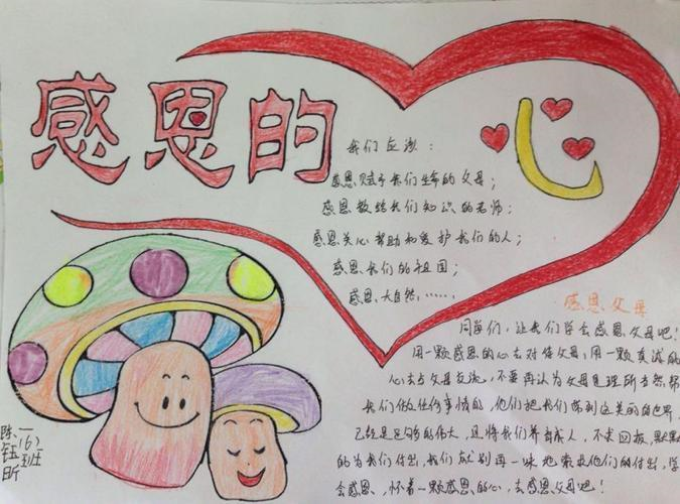 感恩的心
我们应该：
感恩赋予我们生命的父母；
感恩教给我们知识的老师；
感恩关心帮助和爱护我们的人；
感恩我们的祖国；
感恩大自然，……
感恩父母
同学们，让我们学会感恩父母吧！
用一颗感恩的心去对待父母，用一颗真诚的
心去与父母交流，不要再认为父母是理所当然帮
我们做任何事情的，他们把我们带到这美丽的世界，
已经是足够的伟大，且将我们养育成人，不求回报，默默
的为我们付出，我们就别再一味地索取他们的付出，学
会感恩，怀着一颗感恩的心，去感恩父母吧！
一（6）班
陈钰昕